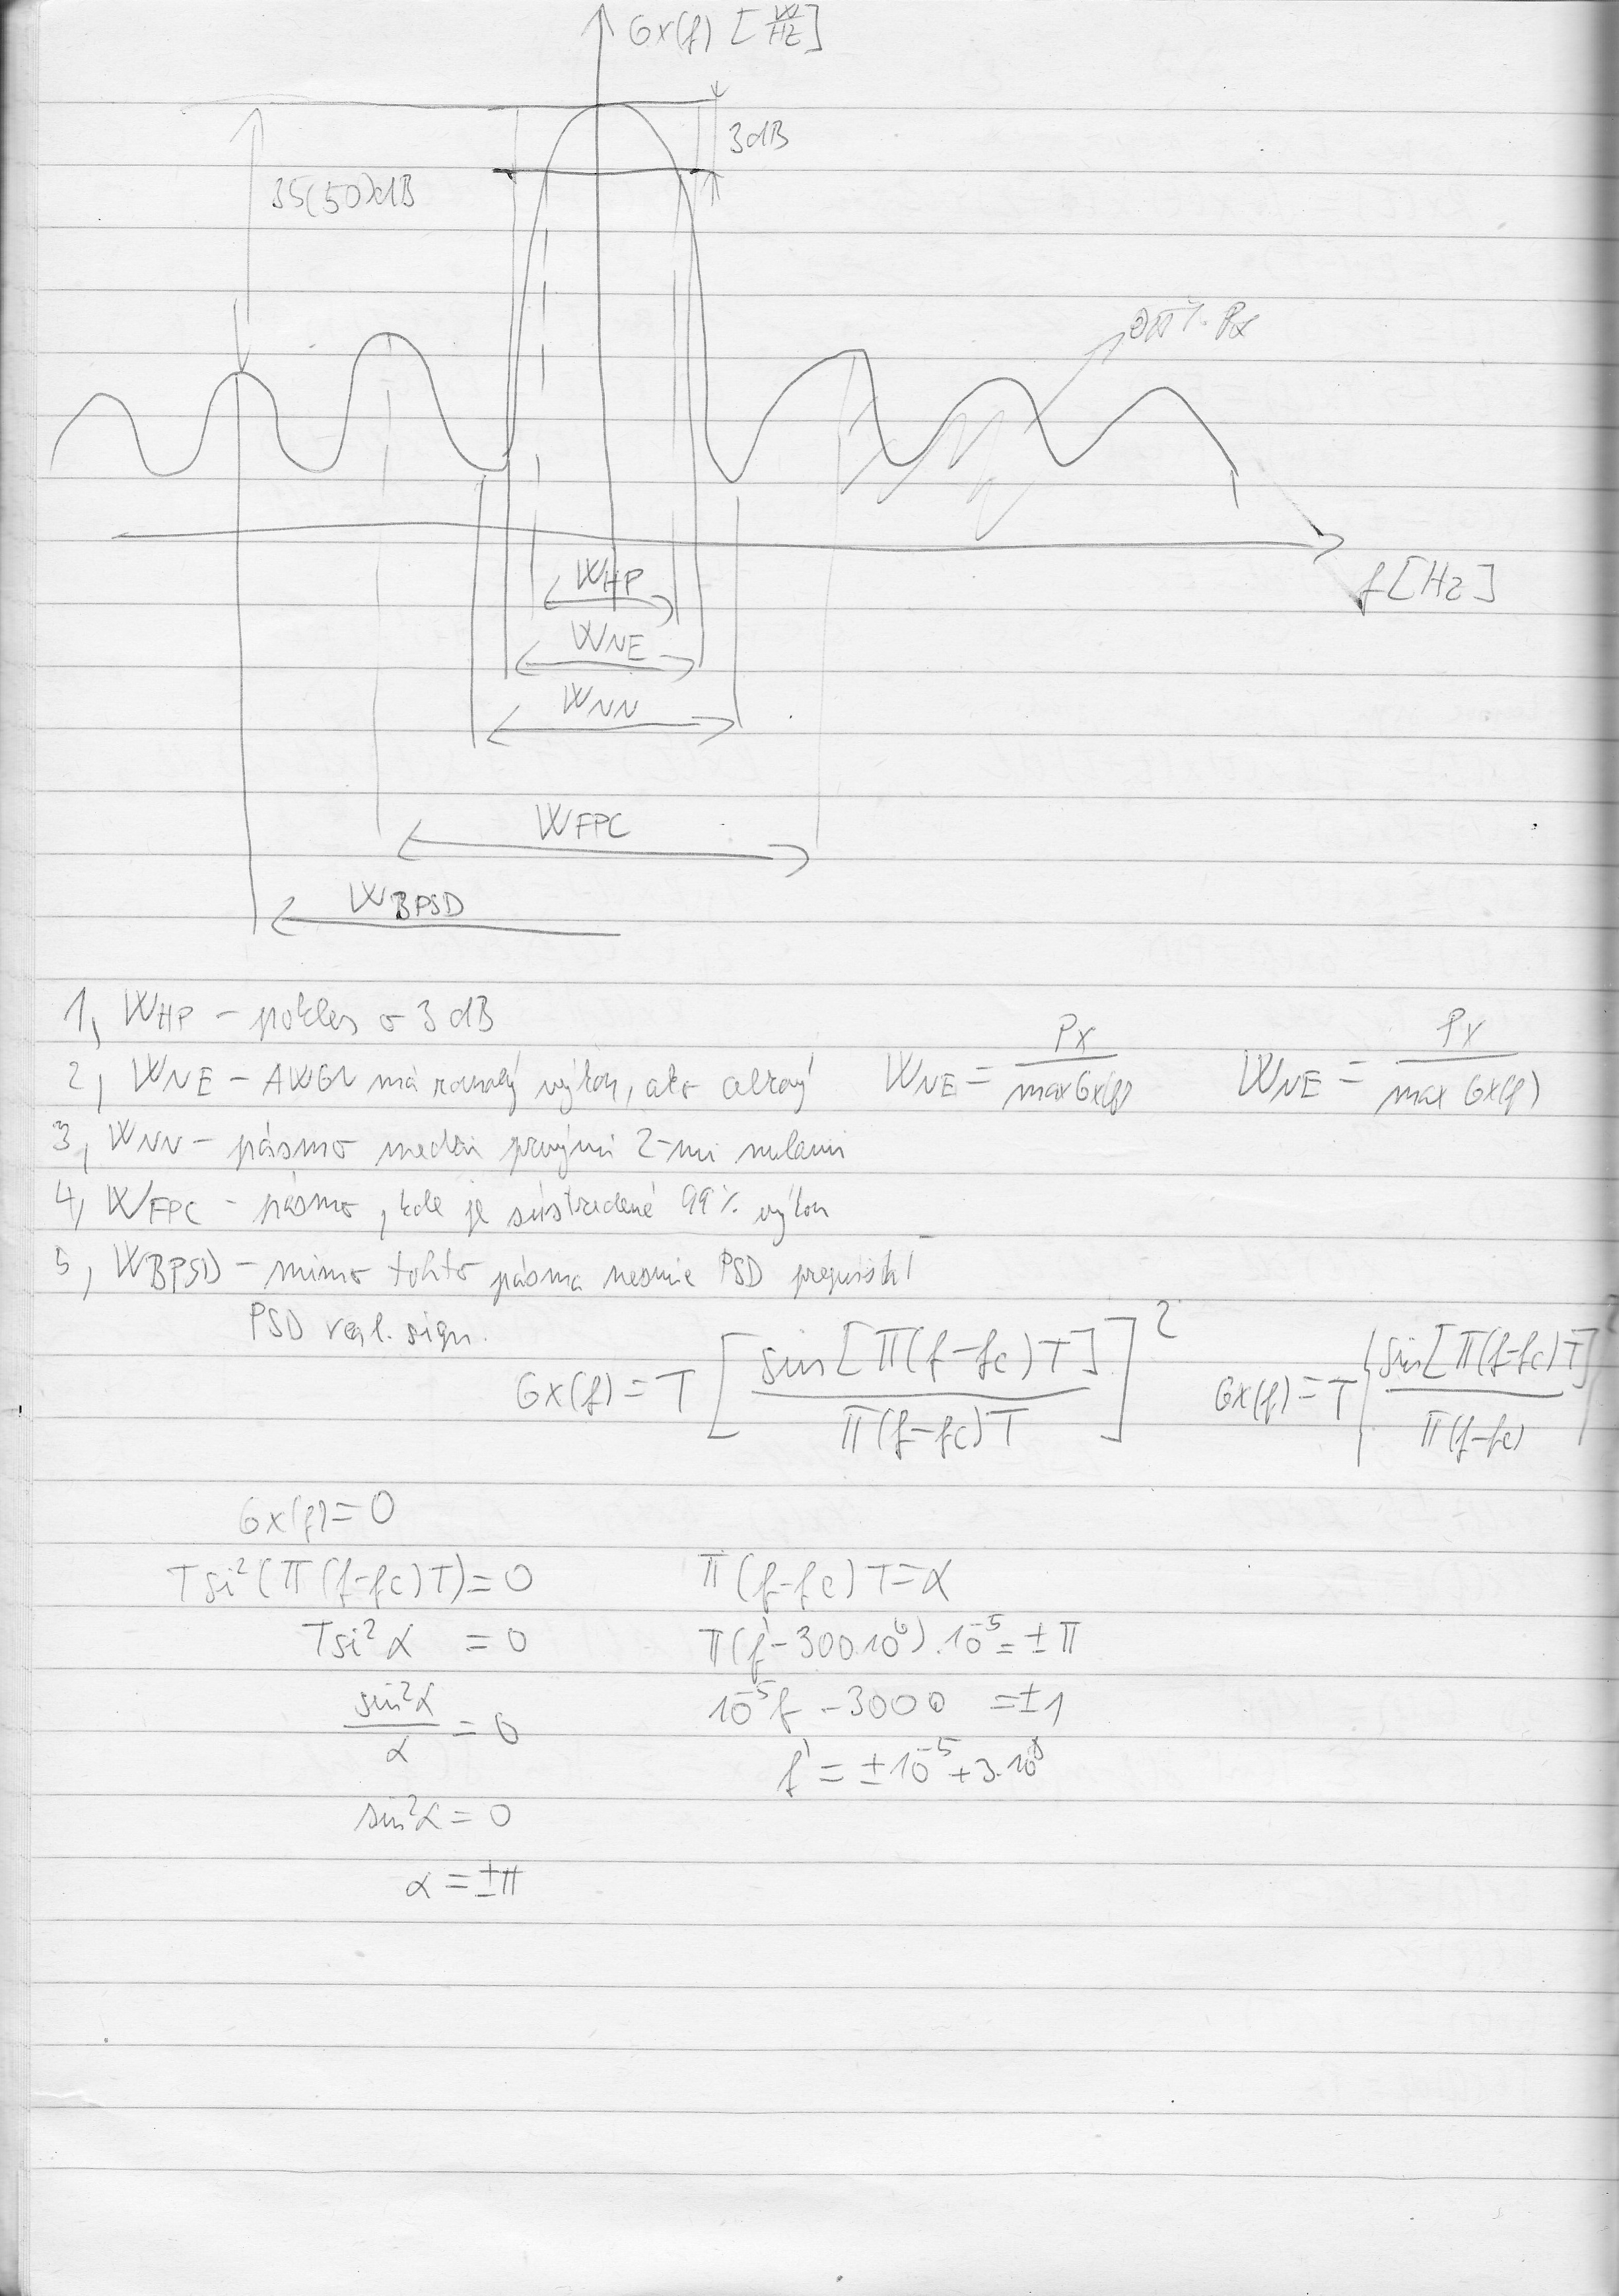 Gx(f) [W/Hz]
3dB
35(50)dB
% Px
f[Hz]
WHP
WNE
WNN
WFPC
WBPSD
1, WHP – pokles o 3 dB
2, WNE – AWGN má rovnaký výkon, ako celkový WNE = Px / max Gx(f) WNE = Px / max Gx(f)
3, WNN – pásmo medzi prvými 2-mi nulami
4, WFPC – pásmo, kde je sústredené 99% výkon
5, WBPSD – mimo tohto pásma nesmie PSD
PSD sign.
Gx(f) = T [ sin[π(f-fc)T] / π(f-fc)T ]² Gx(f) = T [ sin[π(f-fc)T] / π(f-fc) ]²
Gx(f) = 0
T si²(π(f-fc)T) = 0 π(f-fc)T = α
T si² α = 0 π(f-300.10⁶).10⁻⁵ = ± π
sin²α / α = 0 10⁻⁵f - 3000 = ±1
f' = ±10⁻⁵ + 3.10⁸
sin²α = 0
α = ±π